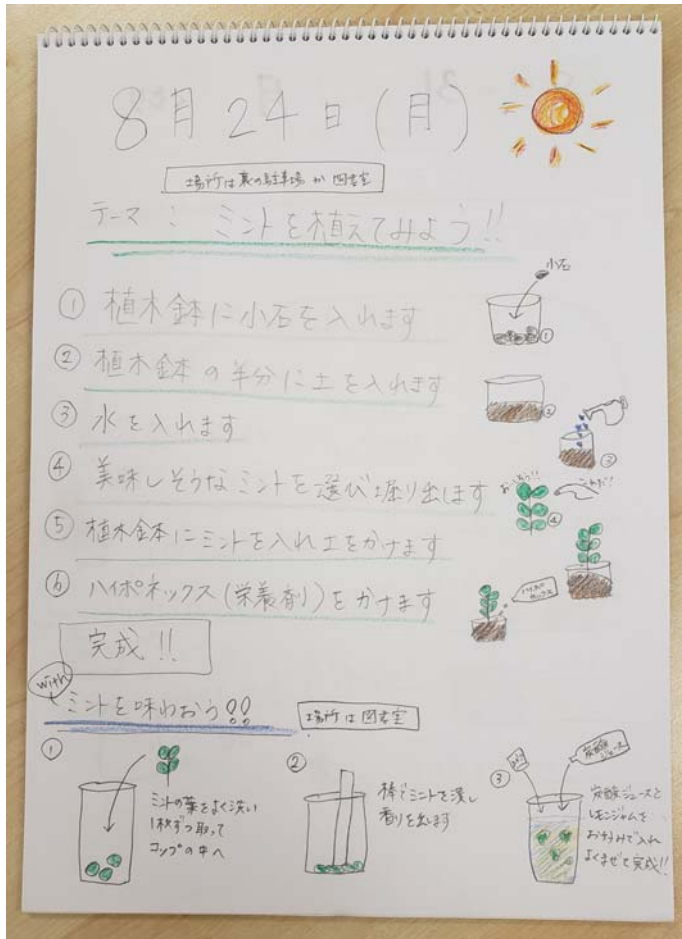 8月24日(月)
場所は裏の駐車場か図書室
テーマ : ミントを植えてみよう!!
① 植木鉢に小石を入れます
小石
①
② 植木鉢の半分に土を入れます
②
③ 水を入れます
③
④ 美味しそうなミントを選び堀り出します
これだ!!
④
⑤ 植木鉢にミントを入れ土をかけます
⑥ ハイポネックス(栄養剤)をかけます
ハイポネックス
完成!!
with
ミントを味わおう!!
場所は図書室
①
ミントの葉をよく洗い
1枚ずつ取って
コップの中へ
②
棒でミントを潰し
香りを出します
③
炭酸ジュース
炭酸ジュースと
レモンジャムを
お好みで入れ
よくまぜて完成!!